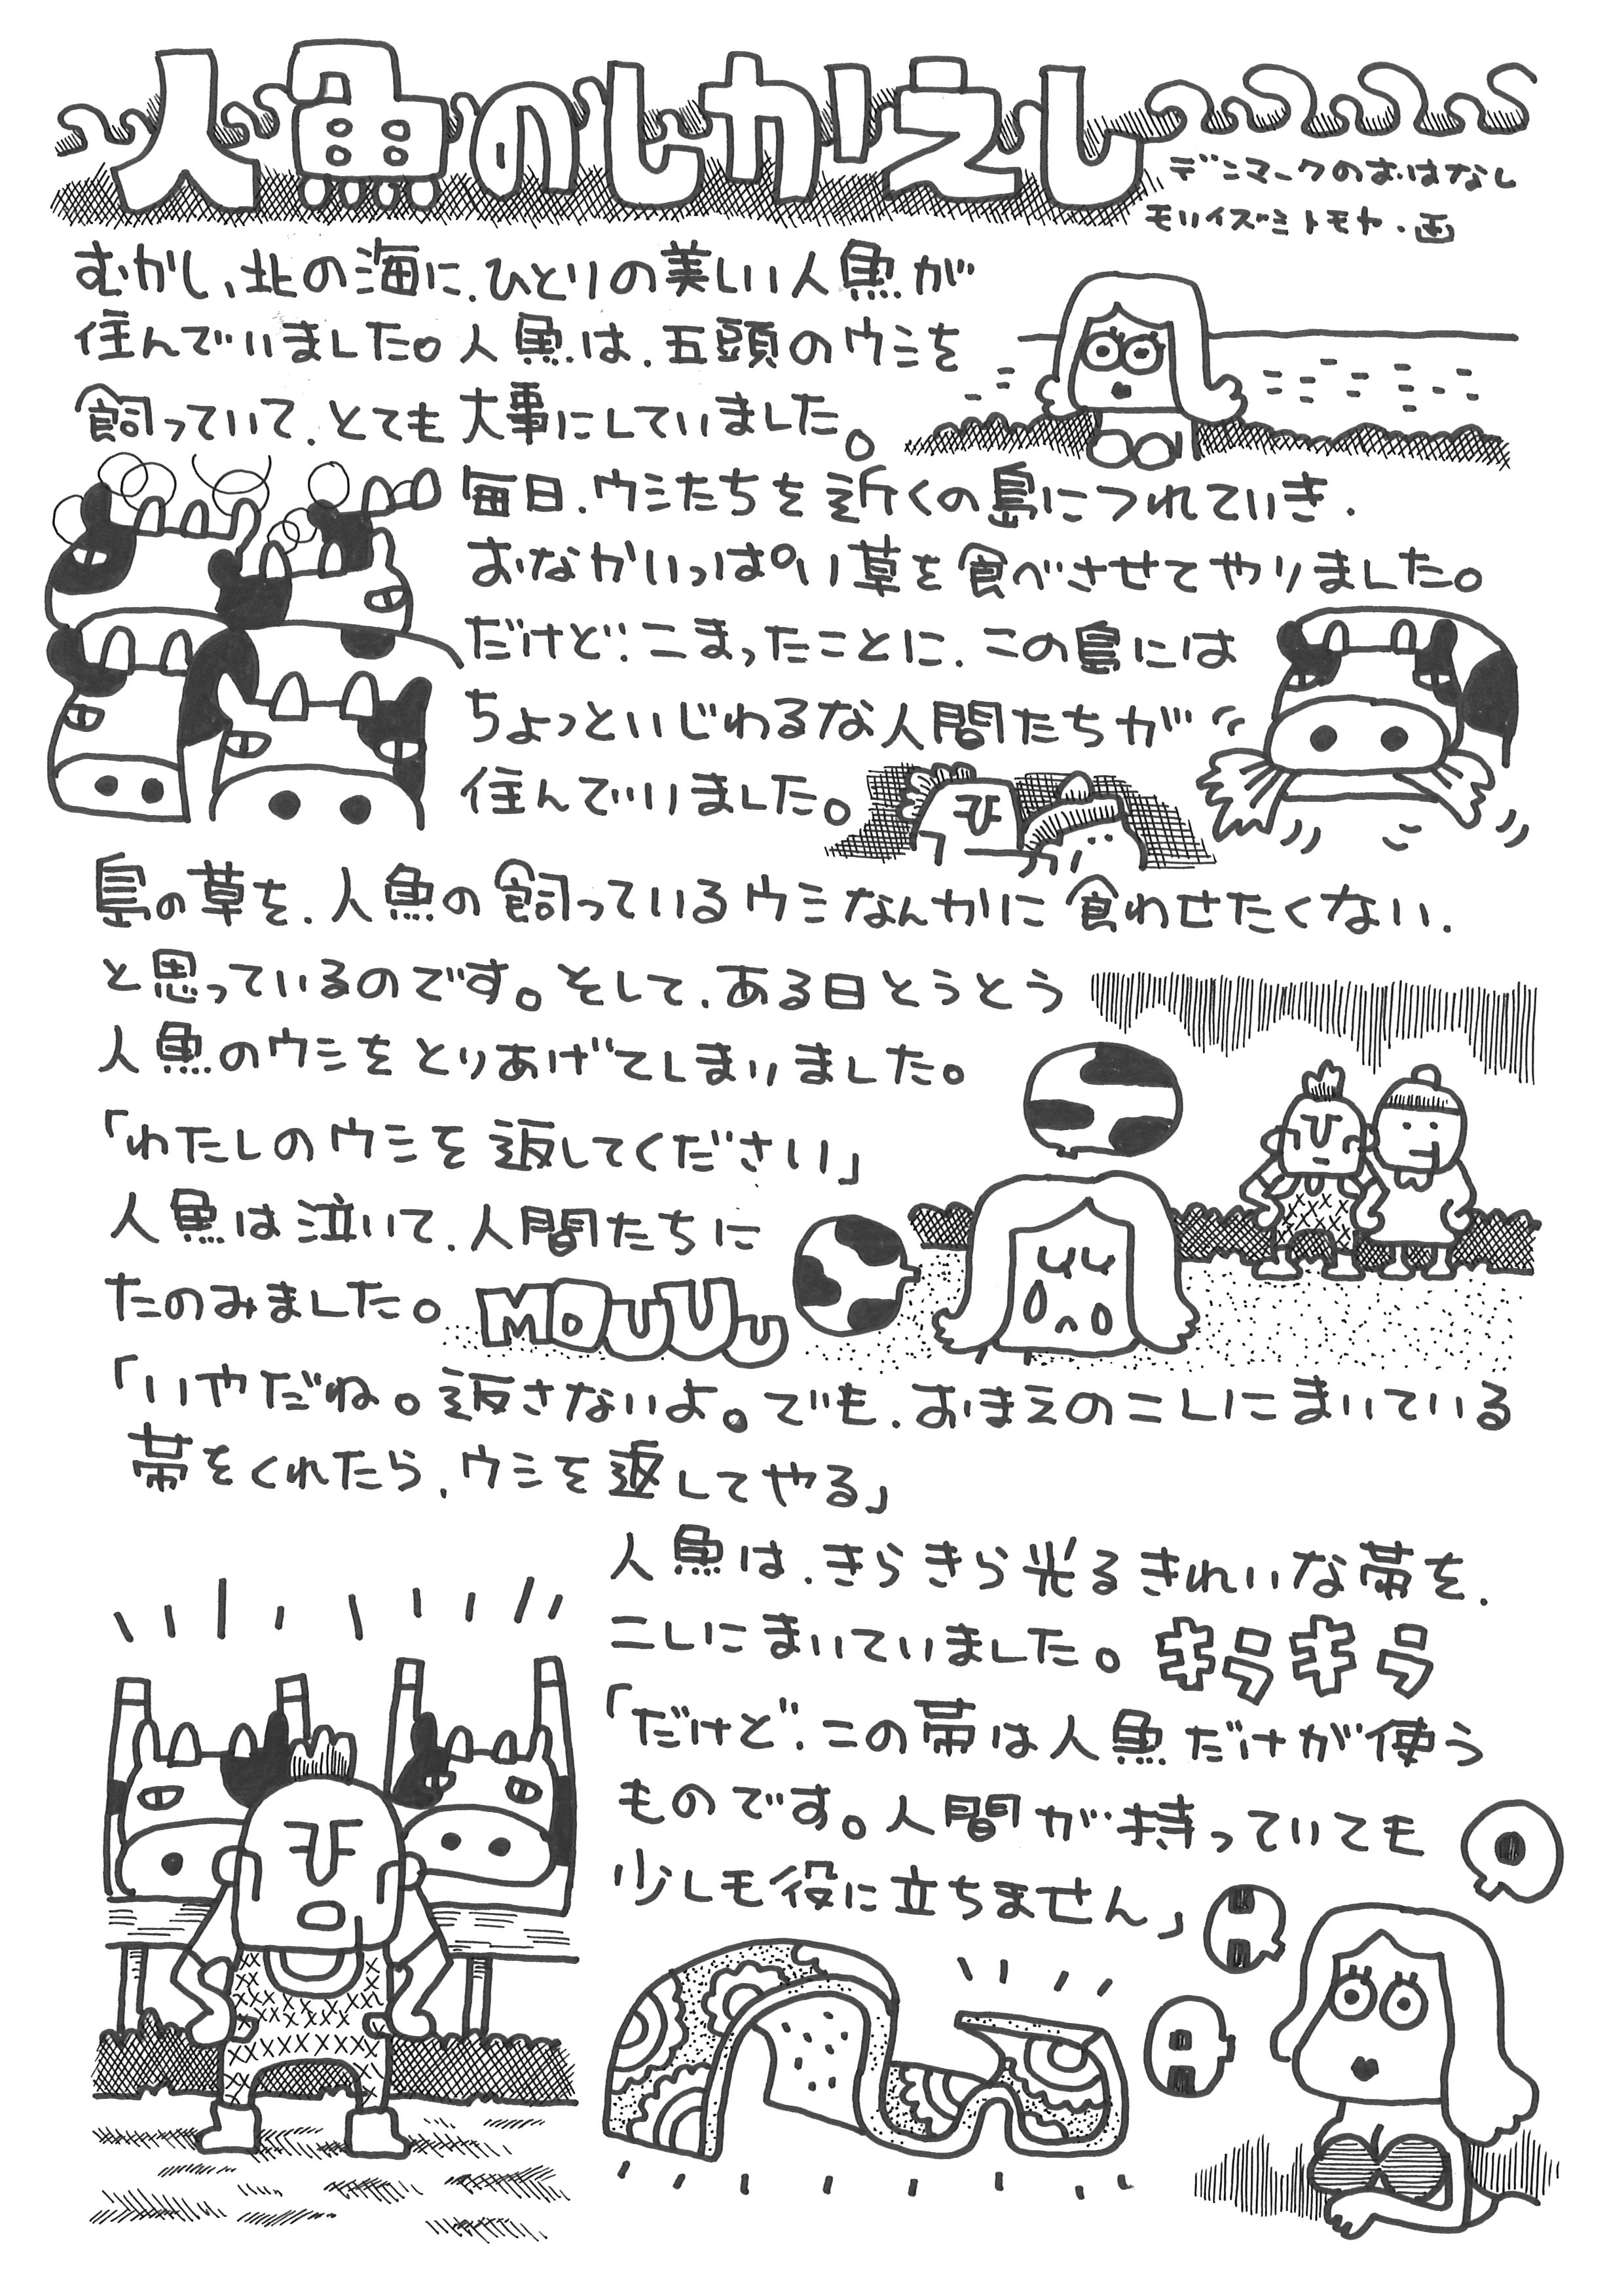 人魚のしかえし
デンマークのおはなし
モリイズミトモヤ・画
むかし、北の海に、ひとりの美しい人魚が
住んでいました。人魚は、五頭のウシを
飼っていて、とても大事にしていました。
毎日、ウシたちを近くの島につれていき、
おなかいっぱい草を食べさせてやりました。
だけど、こまったことに、この島には
ちょっといじわるな人間たちが
住んでいました。
島の草を、人魚の飼っているウシなんかに食わせたくない、
と思っているのです。そして、ある日とうとう
人魚のウシをとりあげてしまいました。
「わたしのウシを返してください」
人魚は泣いて、人間たちに
たのみました。
MOUUu
「いやだね。返さないよ。でも、おまえのこしにまいている
帯をくれたら、ウシを返してやる」
人魚は、きらきら光るきれいな帯を、
こしにまいていました。
キラキラ
「だけど、この帯は人魚だけが使う
ものです。人間が持っていても
少しも役に立ちません」